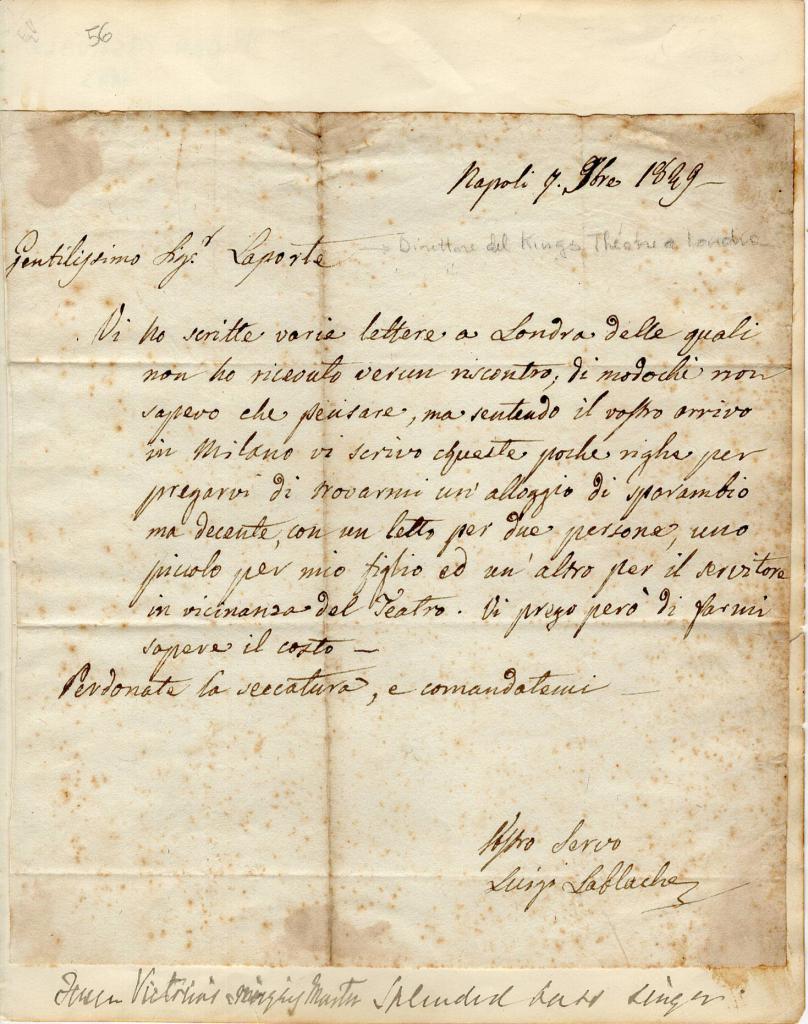 56
Napoli 7. 9bre 1829
Gentilissimo Sigr. Laporte
→ Direttore del Kings Théatre a Londra
Vi ho scritte varie lettere a Londra delle quali
non ho ricevuto verun riscontro, di modochè non
sapevo che pensare, ma sentendo il vostro arrivo
in Milano vi scrivo queste poche righe per
pregarvi di trovarmi un' alloggio di sparambio
ma decente, con un letto per due persone, uno
piccolo per mio figlio ed un' altro per il servitore
in vicinanza del Teatro. Vi prego però di farmi
sapere il costo —
Perdonate la seccatura, e comandatemi —
Vostro Servo
Luigi Lablache
Queen Victoria's singing Master Splended bass singer.